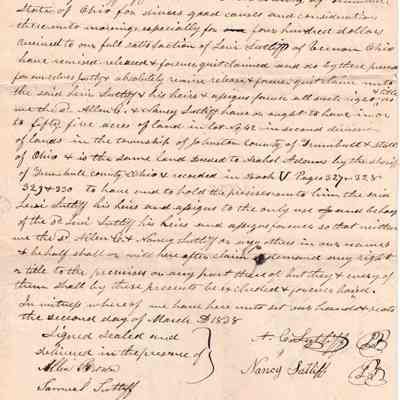 State of Ohio for divers good causes and consideration
thereunto moveing especially for four hundred dollars
received to our full satisfaction of Levi Sutliff of Vernon Ohio
have remised released & forever quit claimed and do by these presents
for ourselves justly & absolutely remise release & forever quit claim unto
the said Levi Sutliff & his heirs & assigns forever all such right & title as
we the sd Allen C. & Nancy Sutliff have or ought to have in or
to fifty five acres of land in lot No 42 in second division
of lands in the township of Johnston County of Trumbull & State
of Ohio & is the same land deeded to Asahel Adams by the sheriff
of Trumbull County Ohio & recorded in Book V Pages 327 & 328
329 & 330 to have and to hold the premises unto him the said
Levi Sutliff his heirs and assigns to the only use and behoof
of the sd Levi Sutliff his heirs and assigns forever so that neither
we the sd Allen C. & Nancy Sutliff or any others in our names
& behalf shall or will hereafter claim or demand any right
or title to the premises or any part thereof but they & every of
them shall by these presents be excluded & forever bared.
In witness whereof we have hereunto set our hands & seals
the second day of March AD 1838
Signed sealed and
delivered in the presence of
A. C. Sutliff
Nancy Sutliff
Allen
Samuel Sutliff